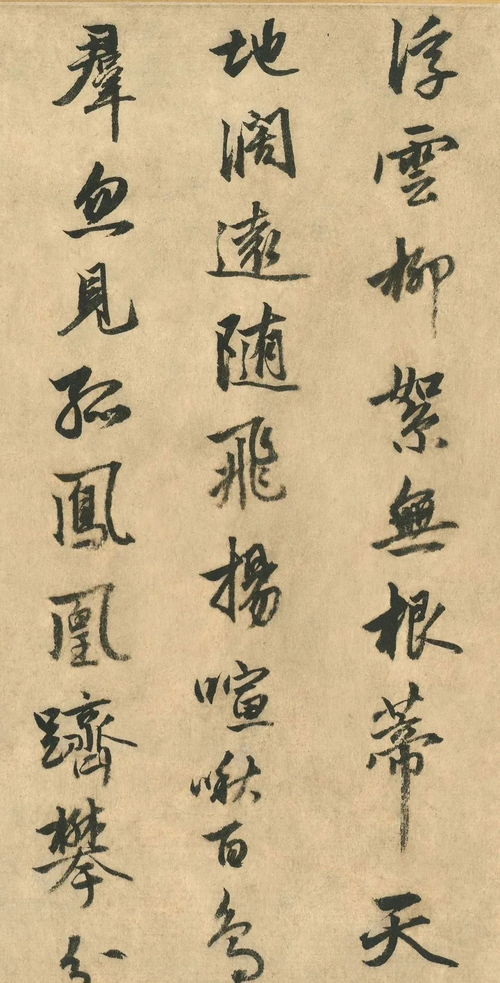 浮雲柳絮無根蒂天
地濶遠隨飛揚喧啾百鳥
羣忽見孤鳳凰躋攀分